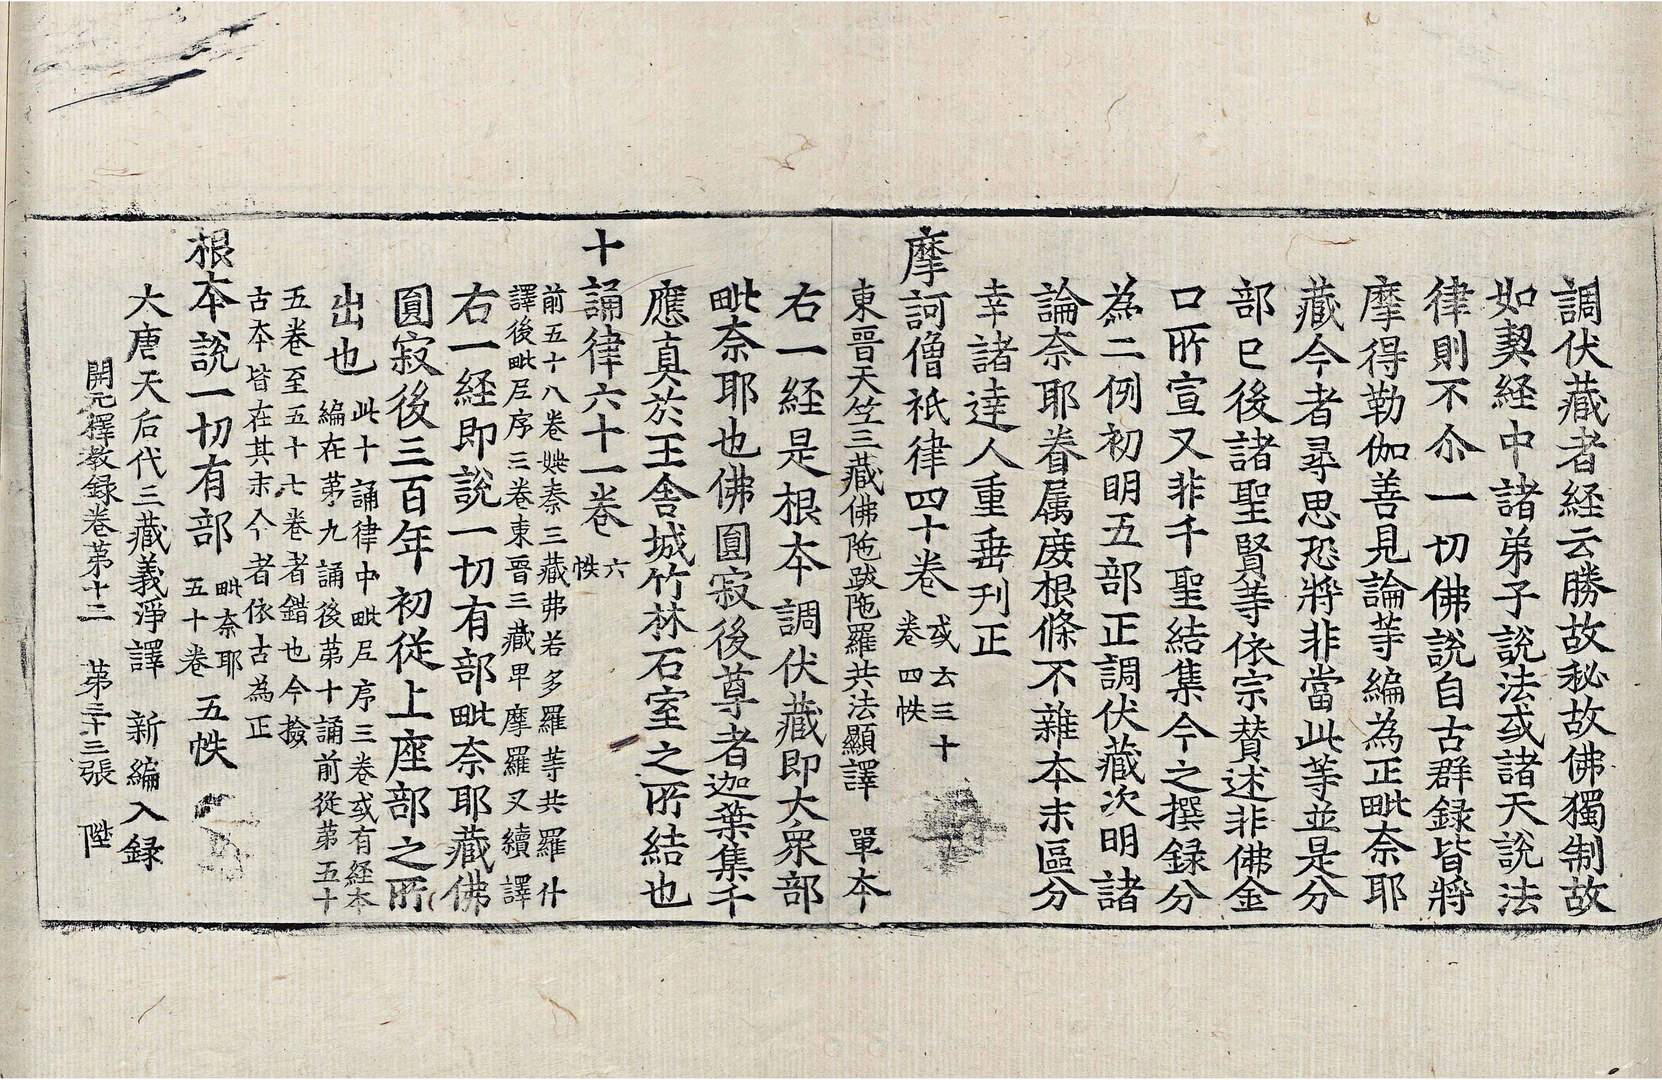 調伏藏者経云勝故秘故佛獨制故
如契経中諸弟子說法或諸天說法
律則不尒一切佛說自古群録皆將
摩得勒伽善見論等編為正毗奈耶
藏今者尋思恐將非當此等並是分
部已後諸聖賢等依宗賛述非佛金
口所宣又非千聖結集今之撰録分
為二例初明五部正調伏藏次明諸
論奈耶眷属庻根條不雜本末區分
幸諸達人重垂刋正
摩訶僧祇律四十卷
或云三十
卷 四帙
東晉天竺三藏佛陁跋陁羅共法顯譯 單本
右一経是根本調伏藏即大衆部
毗奈耶也佛圓寂後尊者迦葉集千
應真於王舎城竹林石室之所結也
十誦律六十一卷
六
帙
前五十八卷姚秦三藏弗若多羅等共羅什
譯後毗尼序三卷東晉三藏卑摩羅叉續譯
右一経即說一切有部毗奈耶藏佛
圓寂後三百年初從上座部之所
出也
此十誦律中毗尼序三卷或有経本
編在第九誦後第十誦前從第五十
五卷至五十七卷者錯也今撿
古本皆在其末今者依古為正
根本說一切有部
毗奈耶
五十卷
五帙
大唐天后代三藏義淨譯 新編入録
開元釋教録卷第十二 第三十三張 陛